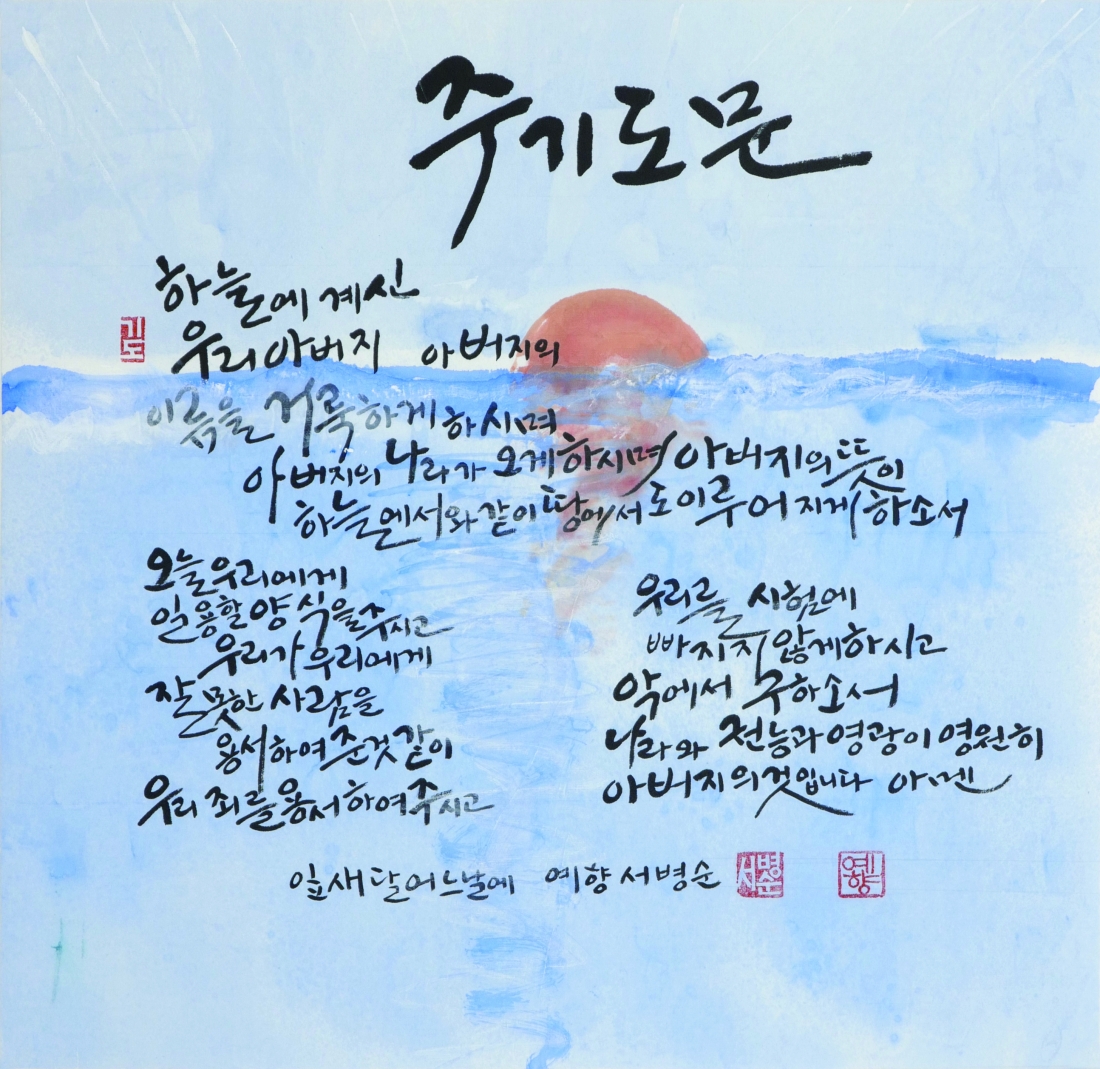 주기도문
하늘에 계신
기도
우리 아버지 아버지의
이름을 거룩하게 하시며
아버지의 나라가 오게 하시며 아버지의 뜻이
하늘에서와 같이 땅에서도 이루어지게 하소서
오늘 우리에게
일용할 양식을 주시고
우리가 우리에게
잘못한 사람을
용서하여 준 것 같이
우리 죄를 용서하여 주시고
우리를 시험에
빠지지 않게 하시고
악에서 구하소서
나라와 권능과 영광이 영원히
아버지의 것입니다 아멘
잎새달 어느날에 예향 서병순
서병순
예향